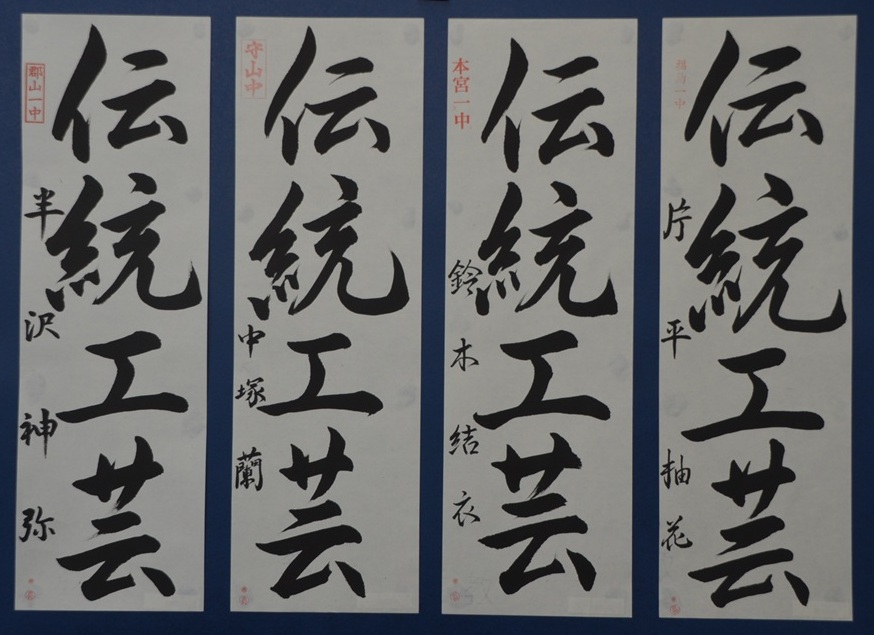 伝統工芸
片平柚花
伝統工芸
本宮一中
鈴木結衣
伝統工芸
守山中
中塚蘭
伝統工芸
郡山一中
半沢神弥